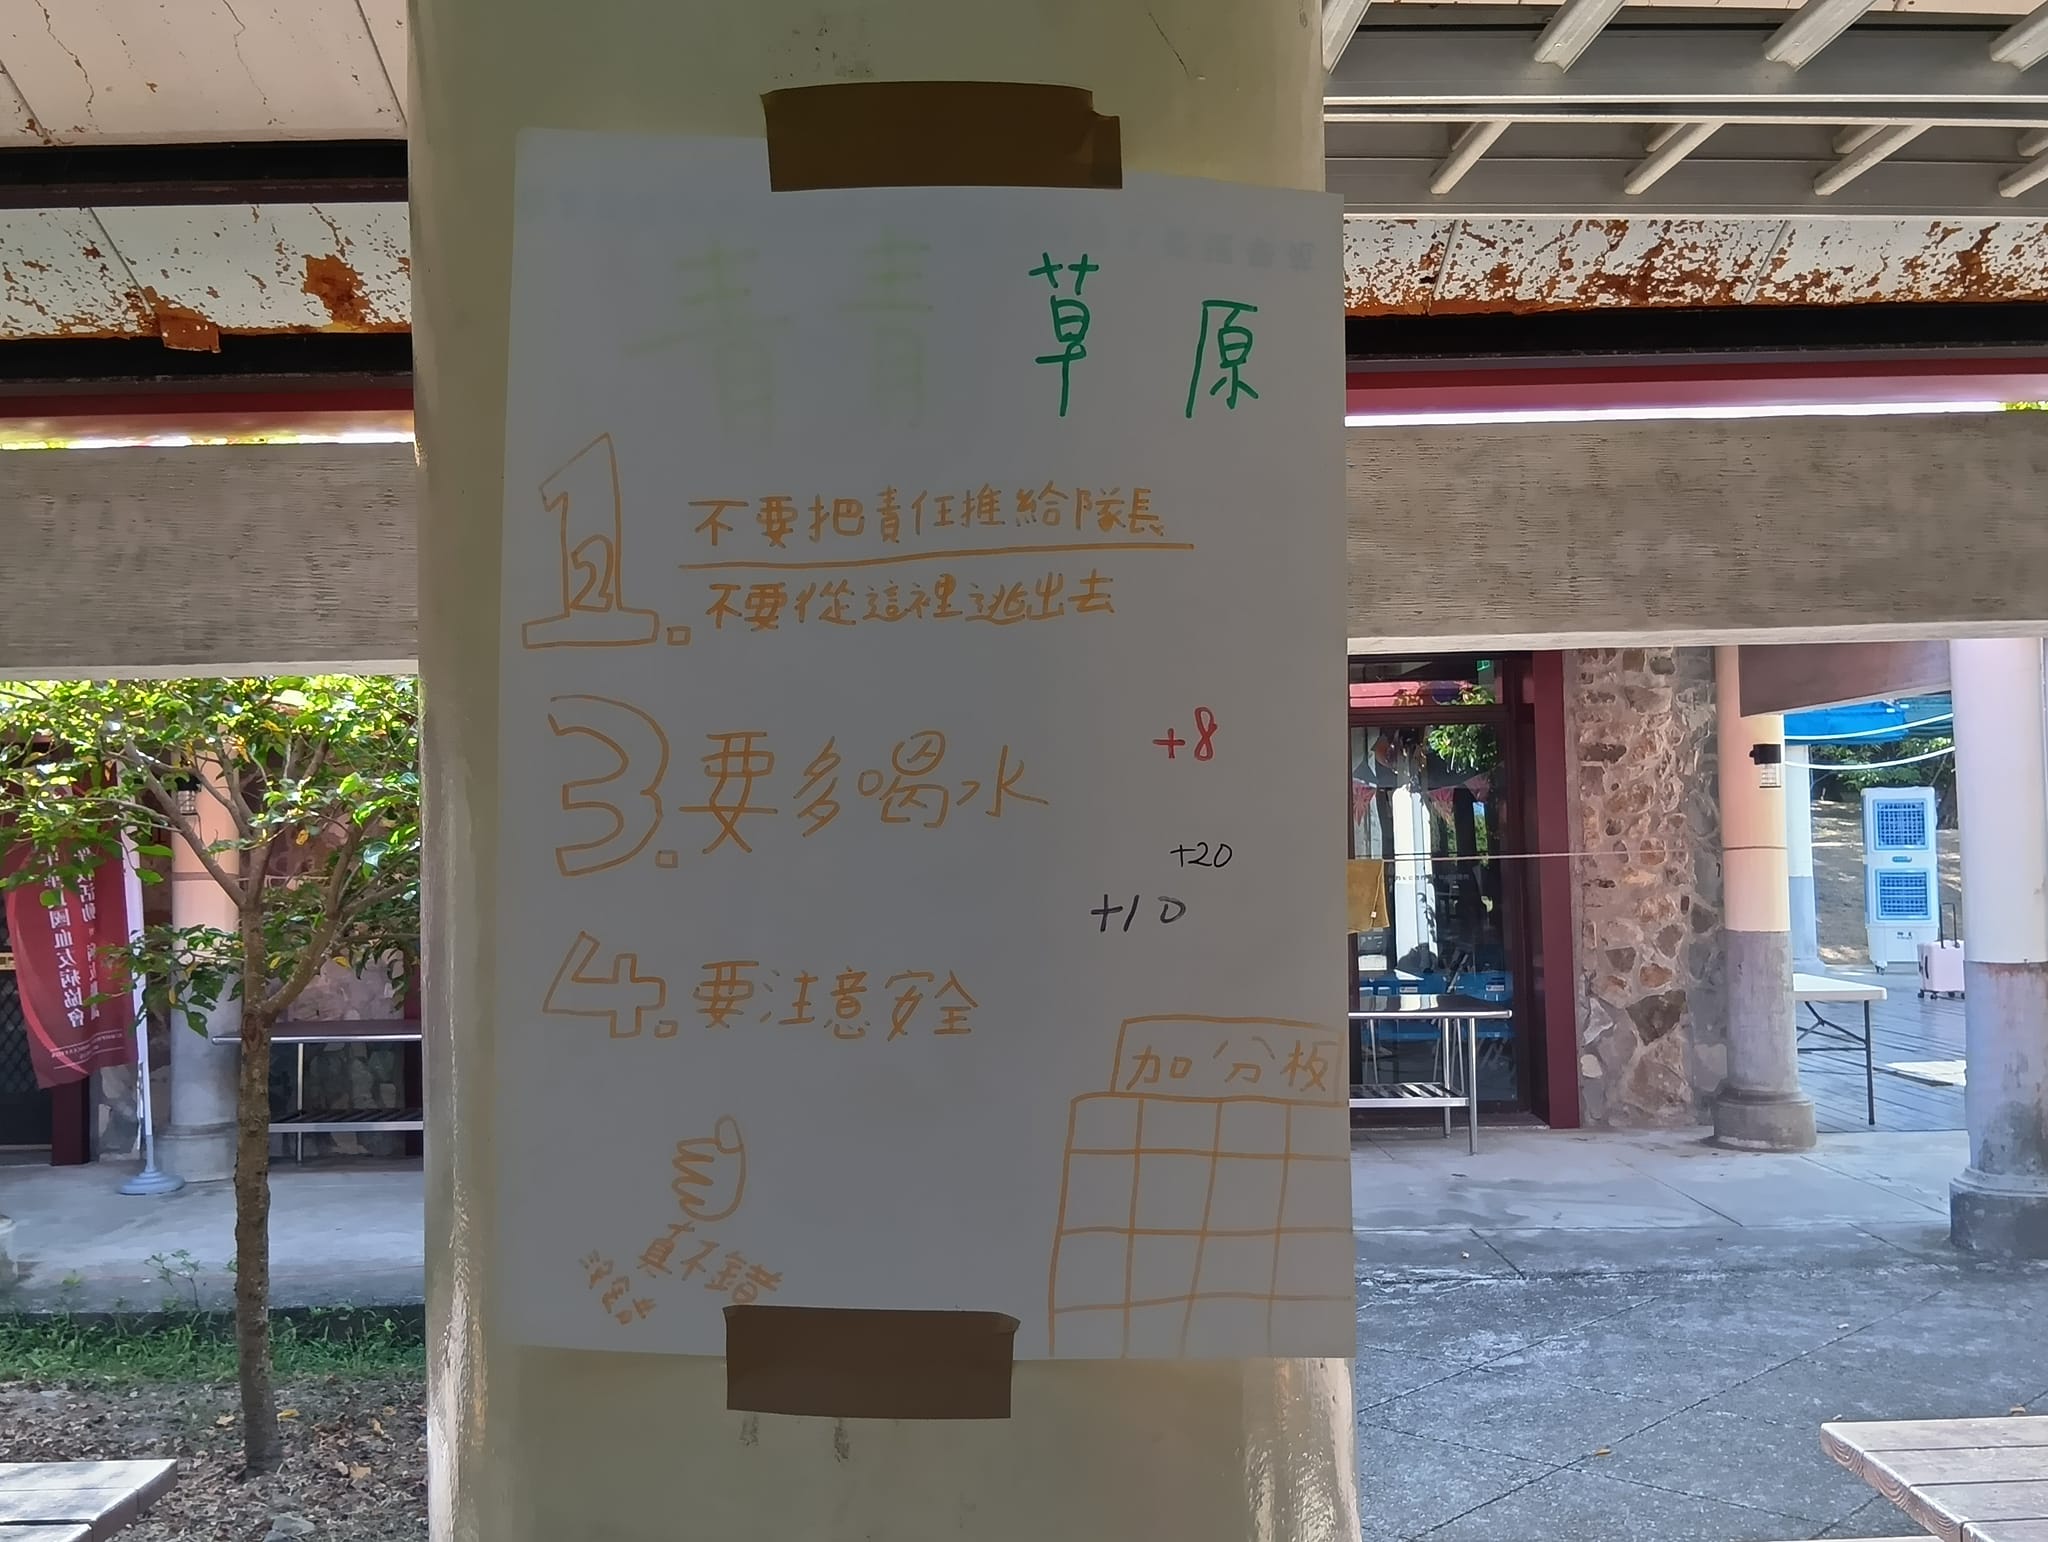 青青草原
1. 不要把責任推給隊長
2 不要從這裡逃出去
3. 要多喝水
+8
+20
+10
4. 要注意安全
加分板
真不錯
國血友病協會